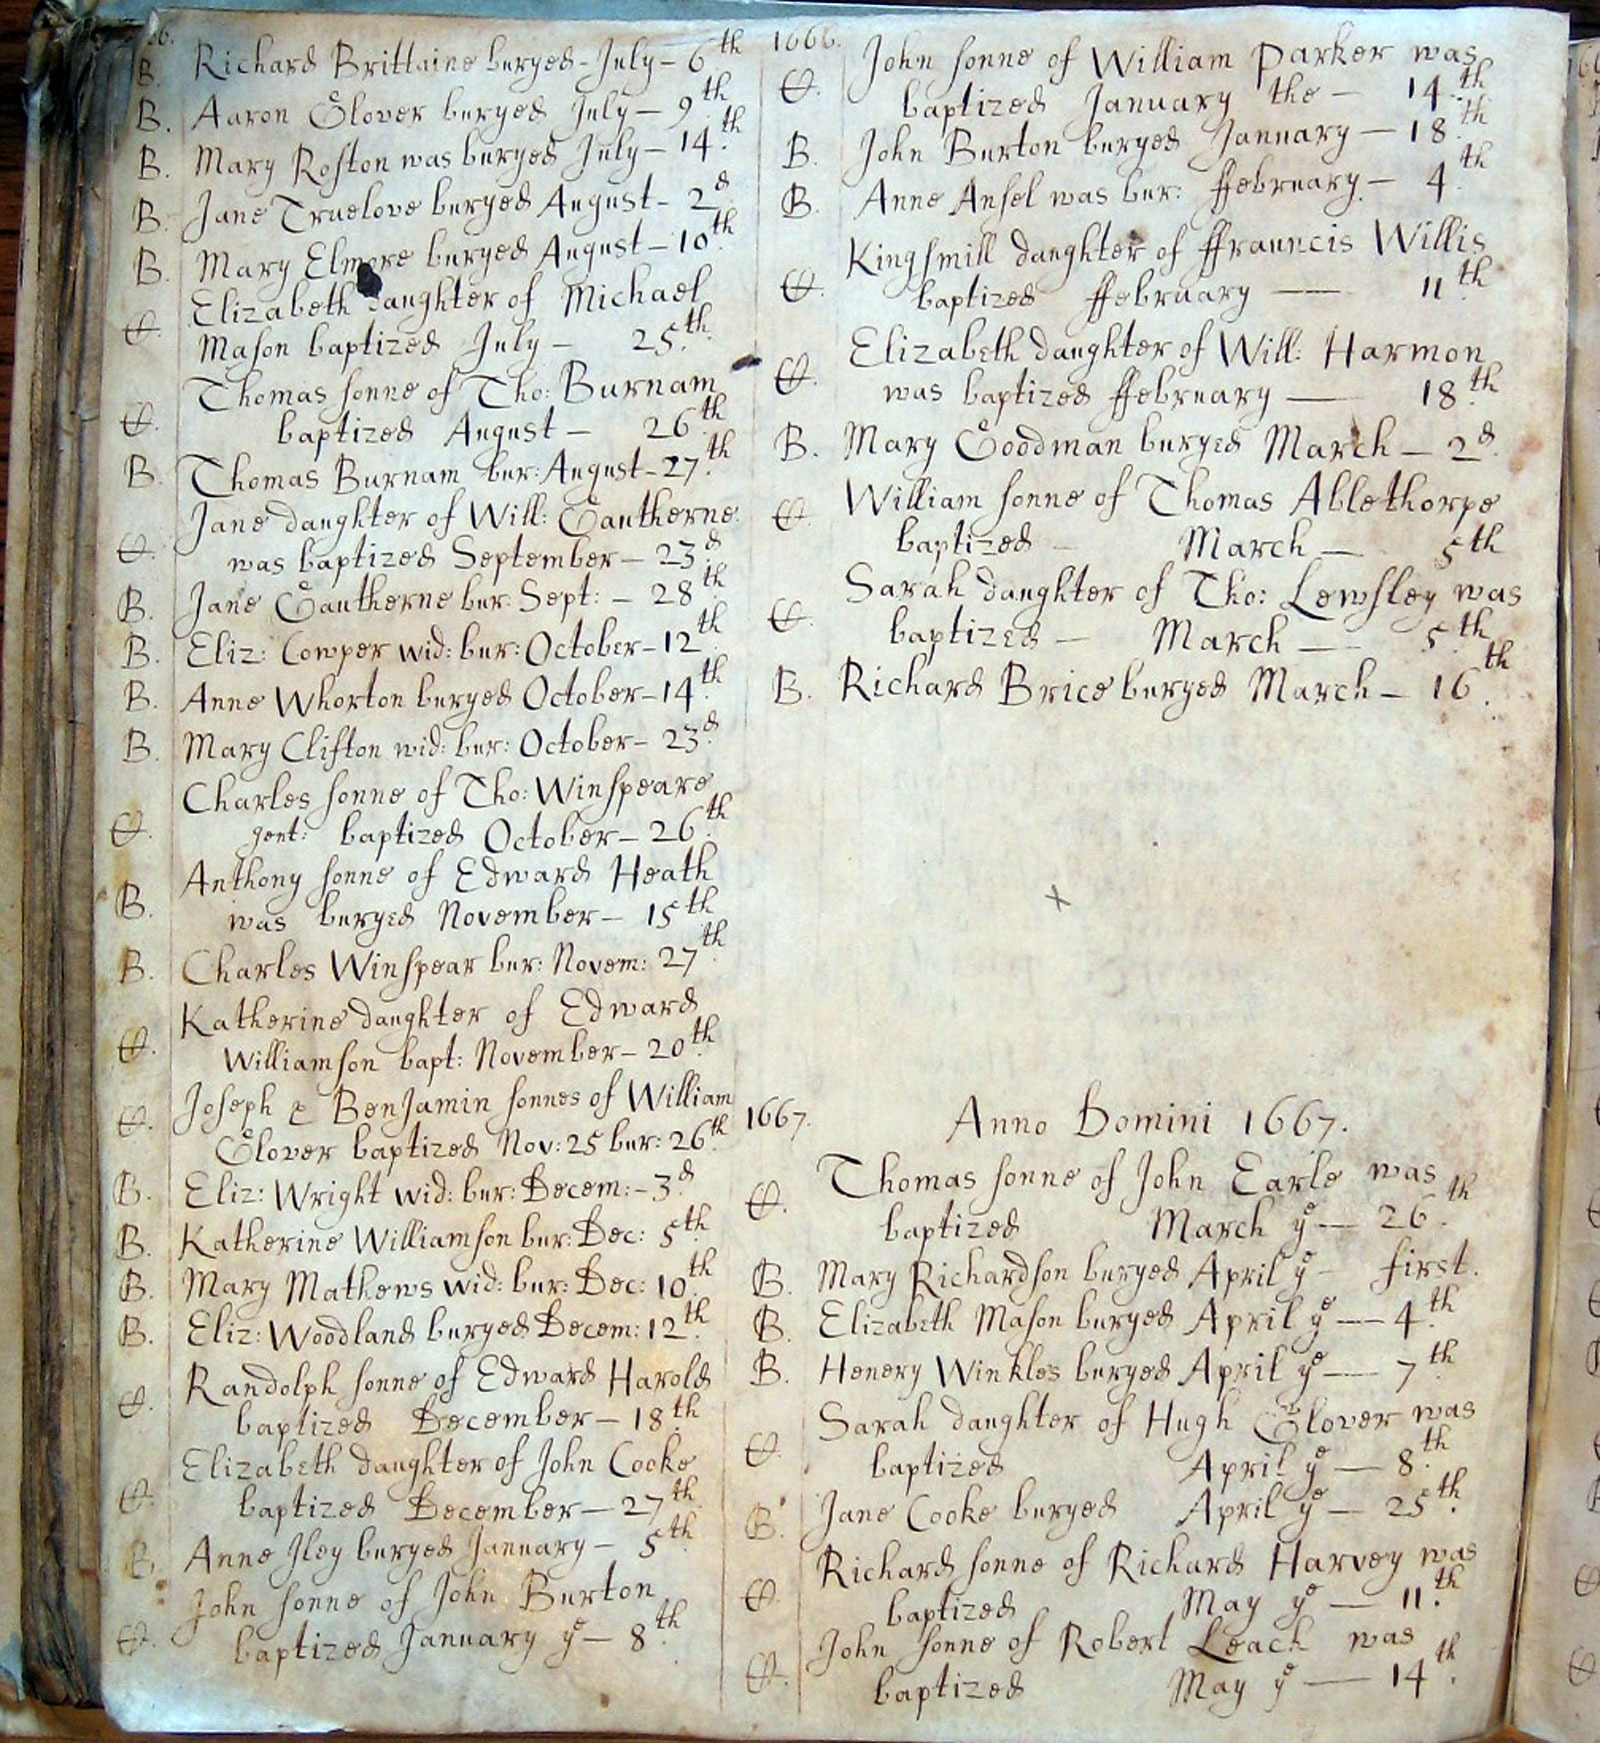 66.
B. Richard Brittaine buryed - July - 6th
B. Aaron Glover buryed July - 9th
B. Mary Roston was buryed July - 14th.
B. Jane Truelove buryed August - 2d
B. Mary Elmore buryed August - 10th.
Elizabeth daughter of Michael
Mason baptized July - 25th.
Thomas sonne of Tho: Burnam
baptized August - 26th
B. Thomas Burnam bur: August - 27th.
Jane daughter of Will: Gautherne
was baptized September - 23d.
B. Jane Gautherne bur: Sept: - 28th
B. Eliz: Cowper wid: bur: October - 12th.
B. Anne Whorton buryed October - 14th.
B. Mary Clifton wid: bur: October - 23d.
Charles sonne of Tho: Winspeare
gent: baptized October - 26th.
Anthony sonne of Edward Heath
B. was buryed November - 15th
B. Charles Winspear bur: Novem: 27th.
Katherine daughter of Edward
Williamson bapt: November - 20th.
Joseph & Benjamin sonnes of William
Glover baptized Nov: 25 bur: 26th.
B. Eliz: Wright wid: bur: Decem: - 3d.
B. Katherine Williamson bur: Dec: 5th.
B. Mary Mathews wid: bur: Dec: 10th.
B. Eliz: Woodland buryed Decem: 12th.
Randolph sonne of Edward Harold
baptized December - 18th
Elizabeth daughter of John Cooke
baptized December - 27th.
B. Anne Iley buryed January - 5th.
John sonne of John Burton
baptized January ye - 8th.
1666.
John sonne of William Parker was
baptized January the - 14th.
B. John Burton buryed January - 18th.
B. Anne Ansel was bur: ffebruary. - 4th.
Kingsmill daughter of ffrauncis Willis
baptized ffebruary - 11th.
Elizabeth daughter of Will: Harmon
was baptized ffebruary - 18th.
B. Mary Goodman buryed March - 2d.
William sonne of Thomas Ablethorpe
baptized - March - 5th
Sarah daughter of Tho: Lewsley was
baptized - March - 5th.
B. Richard Brice buryed March - 16th.
1667. Anno Domini 1667.
Thomas sonne of John Earle was
baptized March ye - 26th.
B. Mary Richardson buryed April ye - first.
B. Elizabeth Mason buryed April ye - 4th.
B. Henery Winkles buryed April ye - 7th
Sarah daughter of Hugh Glover was
baptized April ye - 8th.
B. Jane Cooke buryed April ye - 25th.
Richard sonne of Richard Harvey was
baptized May ye - 11th.
John sonne of Robert Leach was
baptized May ye - 14th.